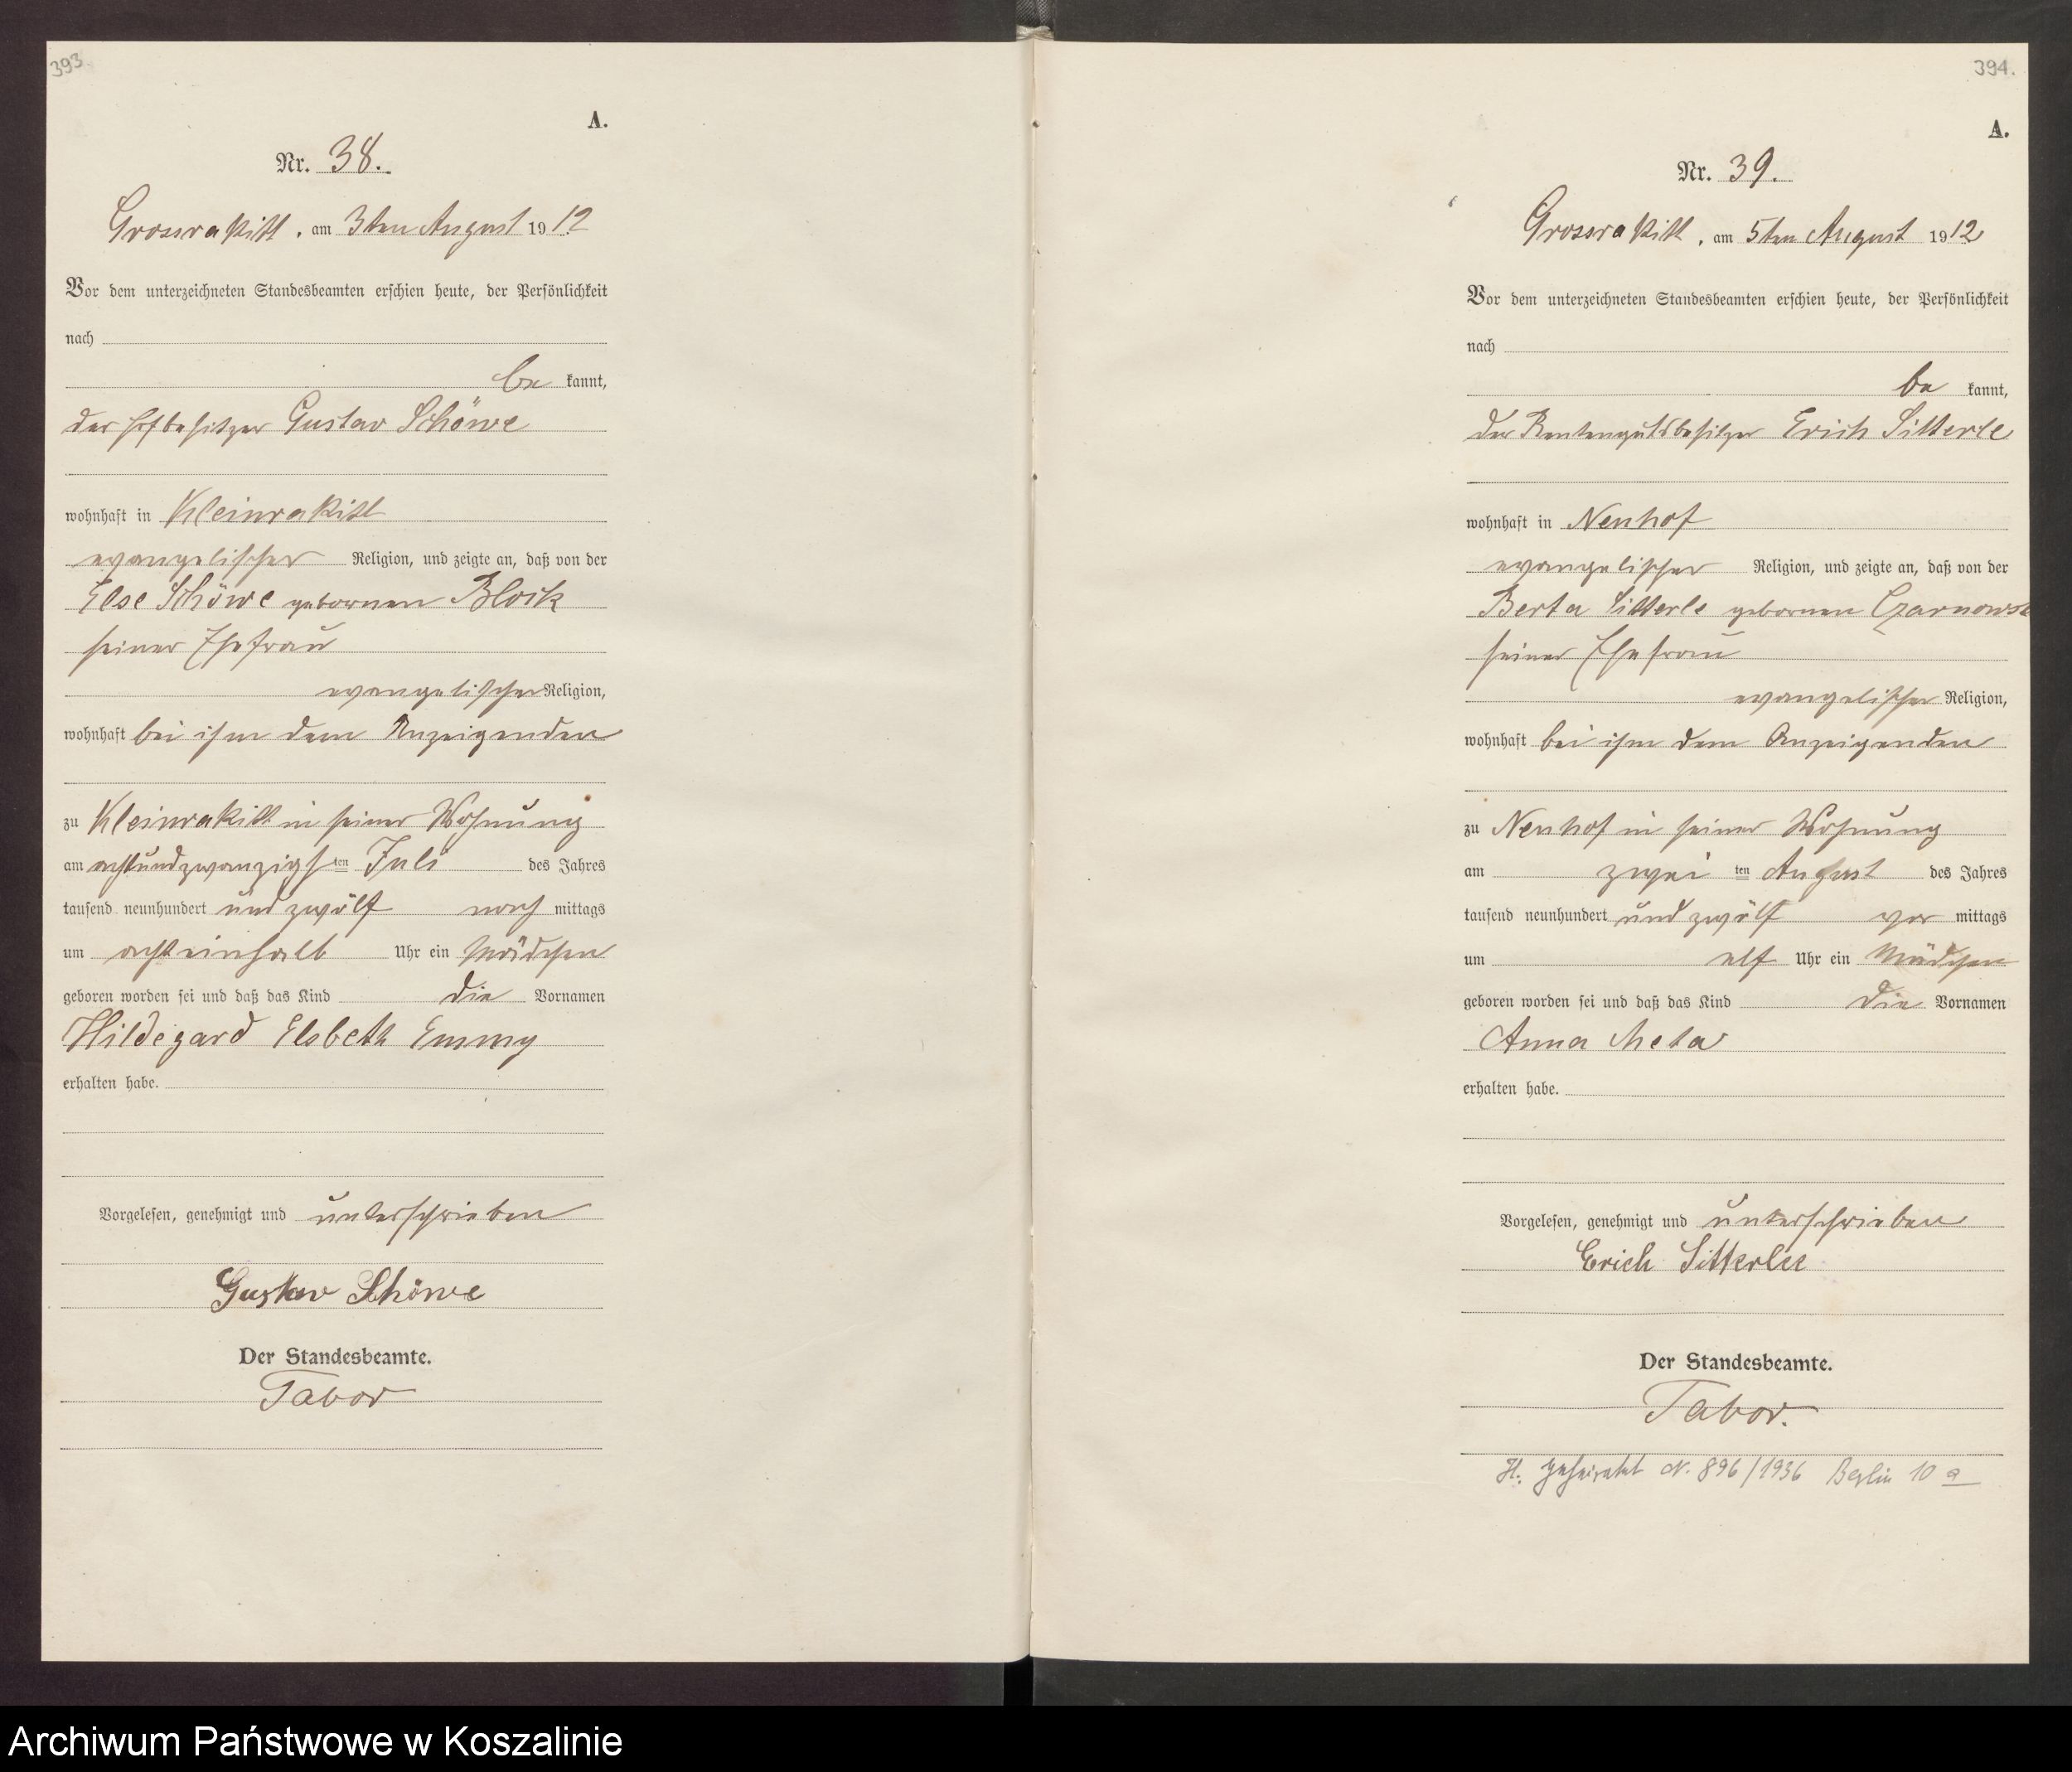 393.
A.
Nr. 38.
Grossrakitt, am 3ten August 1912
Vor dem unterzeichneten Standesbeamten erschien heute, der Persönlichkeit
nach
be kannt,
der Hofbesitzer Gustav Schöwe
wohnhaft in Kleinrakitt
evangelischer Religion, und zeigte an, daß von der
Else Schöwe gebornen Block
seiner Ehefrau
evangelischer Religion,
wohnhaft bei ihm dem Anzeigenden
zu Kleinrakitt in seiner Wohnung
am achtundzwanzigsten Juli des Jahres
tausend neunhundert und zwölf nach mittags
um acht einhalb Uhr ein Mädchen
geboren worden sei und daß das Kind die Vornamen
Hildegard Elsbeth Emmy
erhalten habe.
Vorgelesen, genehmigt und unterschrieben
Gustav Schöwe
Der Standesbeamte.
Tabor
394.
A.
Nr. 39.
Grossrakitt, am 5ten August 1912
Vor dem unterzeichneten Standesbeamten erschien heute, der Persönlichkeit
nach
be kannt,
der Rentengutsbesitzer Erich Sitterle
wohnhaft in Neuhof
evangelischer Religion, und zeigte an, daß von der
Berta Sitterle gebornen Czarnowsk
seiner Ehefrau
evangelischer Religion,
wohnhaft bei ihm dem Anzeigenden
zu Neuhof in seiner Wohnung
am zwei ten August des Jahres
tausend neunhundert und zwölf vor mittags
um elf Uhr ein Mädchen
geboren worden sei und daß das Kind die Vornamen
Anna Meta
erhalten habe.
Vorgelesen, genehmigt und unterschrieben
Erich Sitterlee
Der Standesbeamte.
Tabor.
H: geheiratet N. 896/1936 Berlin 10 a
Archiwum Państwowe w Koszalinie